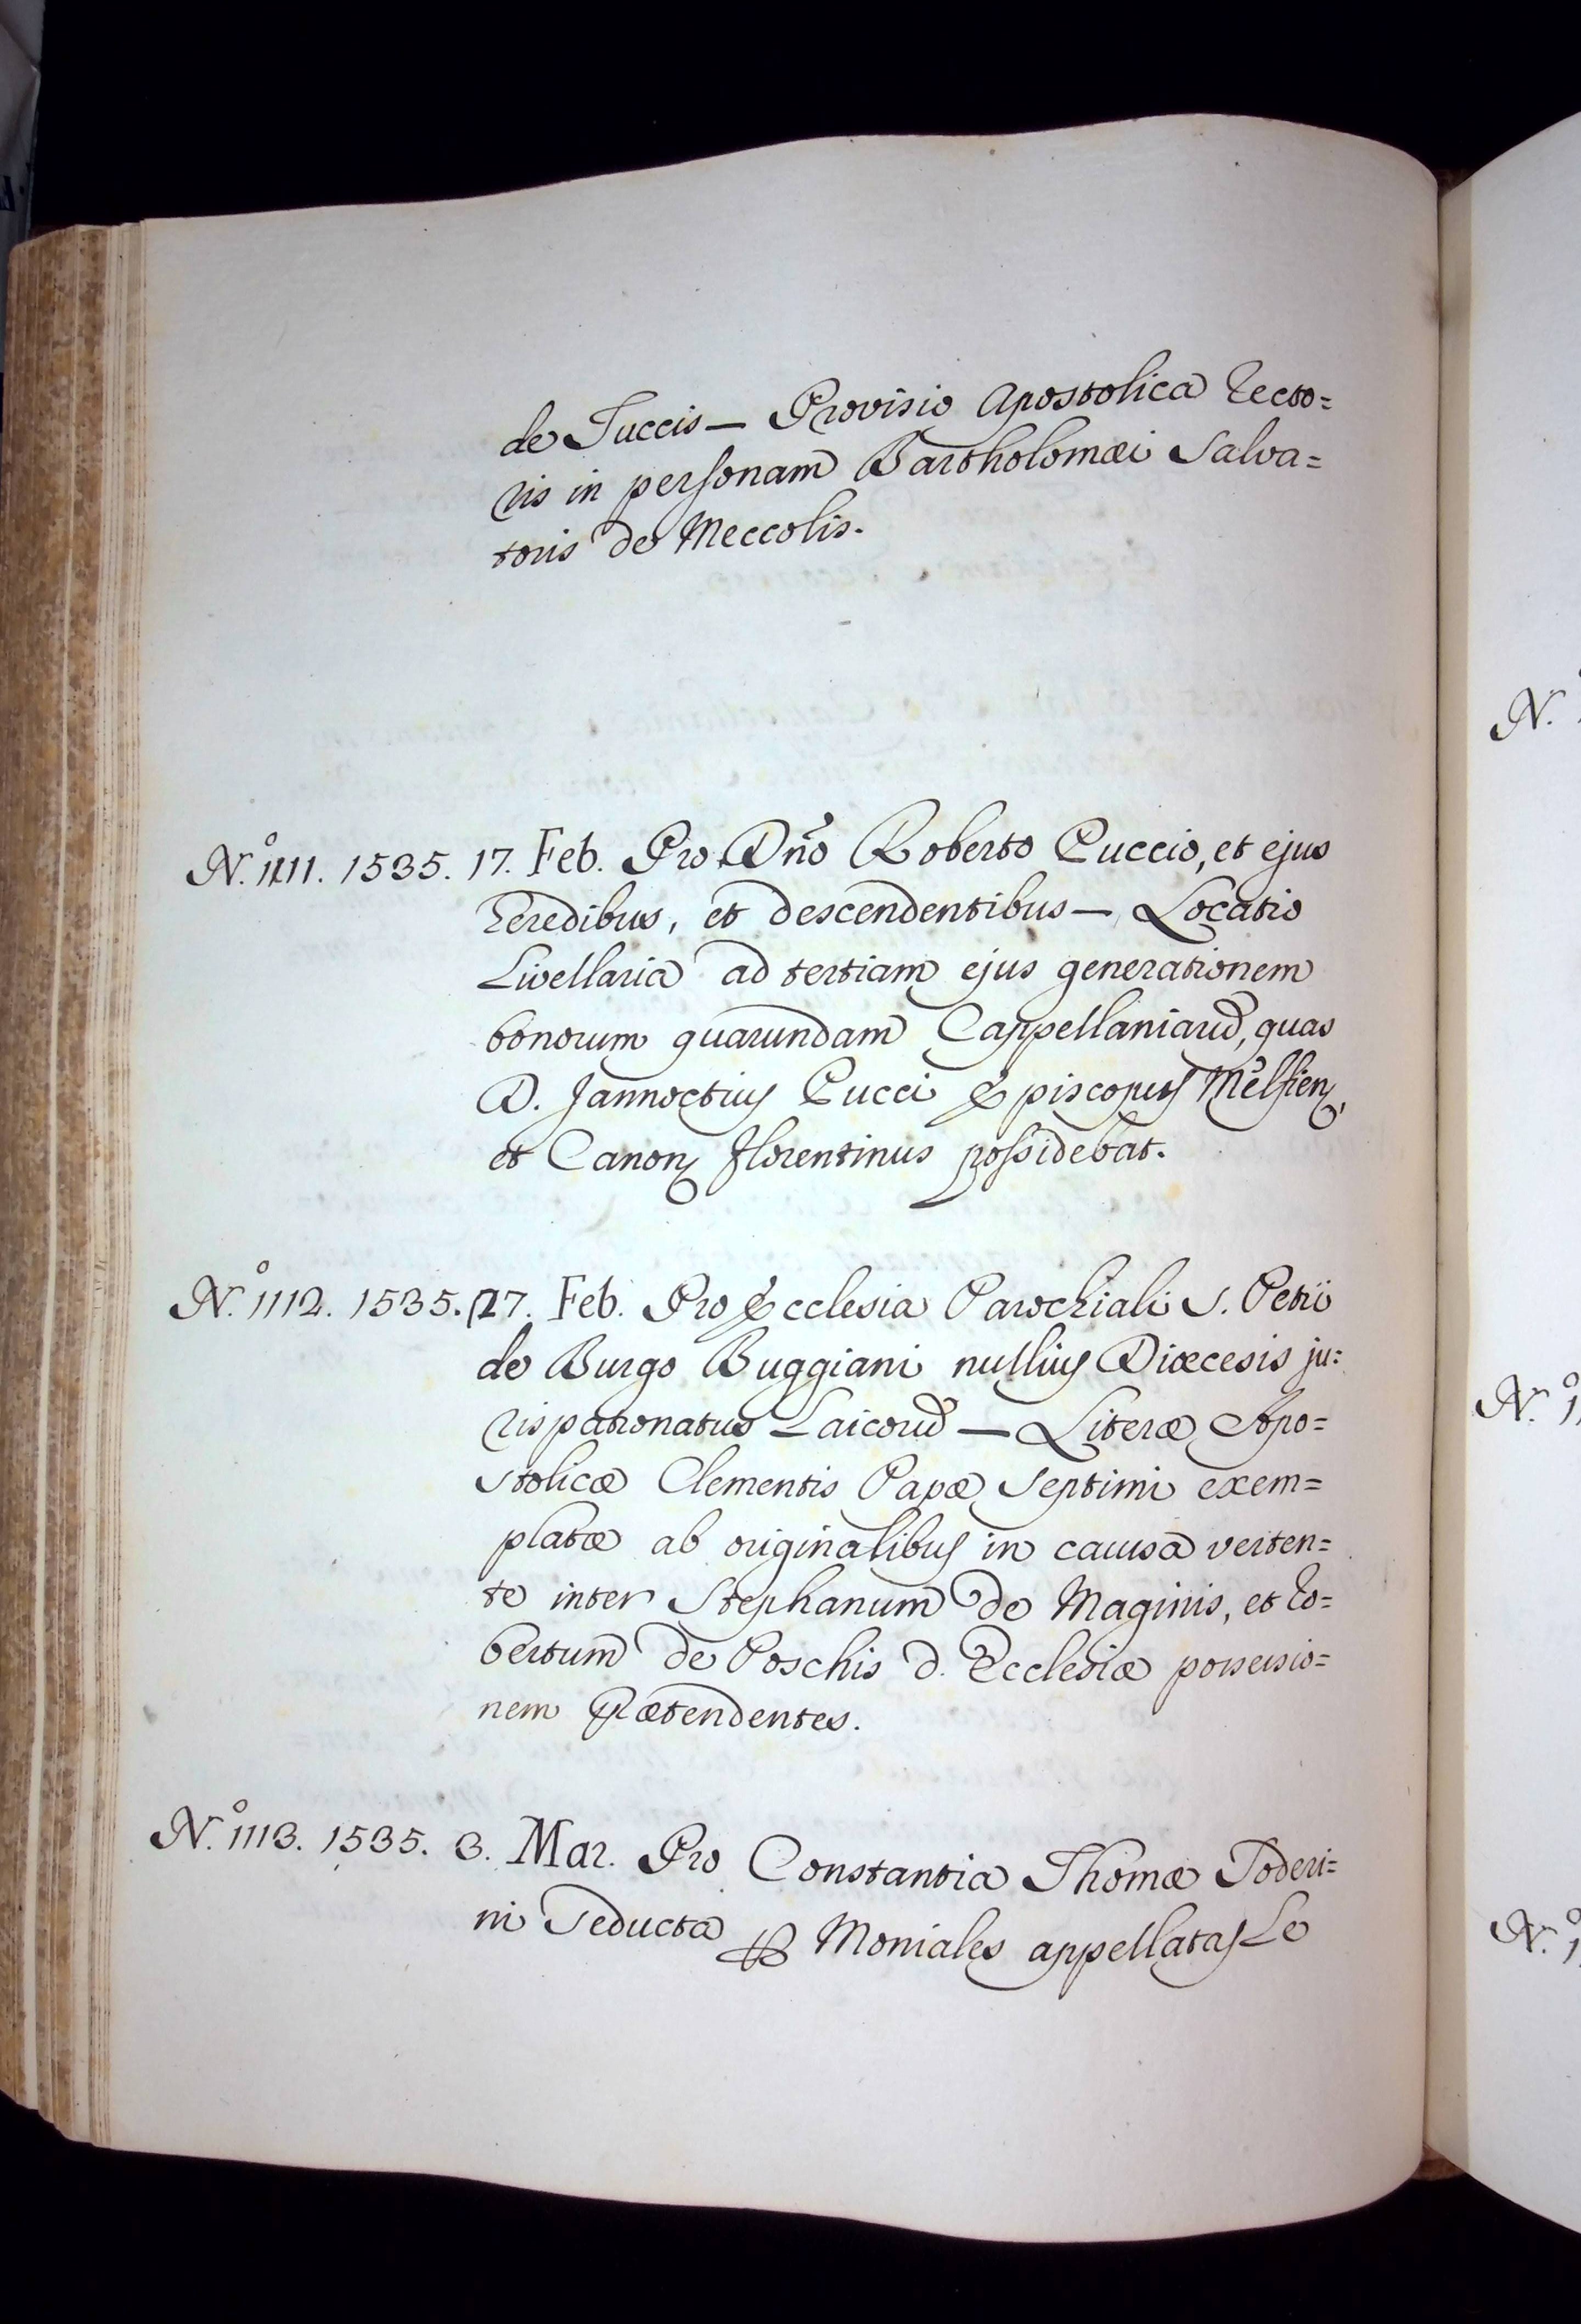 de Tuccis — Provisio Apostolica Recto=
ris in personam Bartholomæi Salva=
toris de Meccolis.
N.º 1111. 1535. 17. Feb. Pro Dño Roberto Puccio, et ejus
heredibus, et descendentibus — Locatio
Livellaria ad tertiam ejus generationem
bonorum quarundam Cappellaniarũ, quas
D. Jannoctius Pucci Episcopus Melfien,
et Canon Florentinus possidebat.
N.º 1112. 1535. 27. Feb. Pro Ecclesia Parochiali S. Petri
de Burgo Buggiani nullius Diœcesis ju=
rispatronatus Laicorũ — Literæ Apo=
stolicæ Clementis Papæ Septimi exem=
platæ ab originalibus in causa verten=
te inter Stephanum de Maginis, et Ro=
bertum de Poschis d. Ecclesiæ possessio=
nem Prætendentes.
N.º 1113. 1535. 3. Mar. Pro Constantia Thomæ Toderi=
ni Seducta Moniales appellatas Le
N.
N.º 1
N.º 1